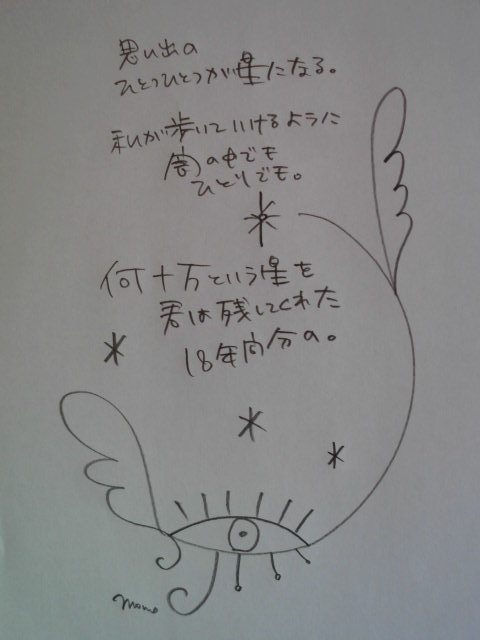 思い出の
ひとつひとつが星になる。
私が歩いていけるように
闇の中でも
ひとりでも。
何十万という星を
君は残してくれた
18年間分の。
momo